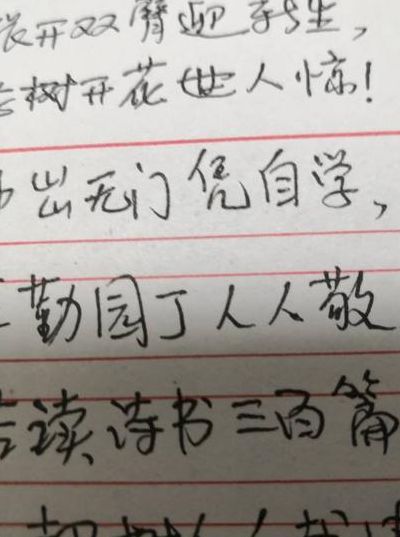 张开双臂迎
树开花世人惊!
出无门凭自学,
勤园丁人人敬
读诗书三百篇